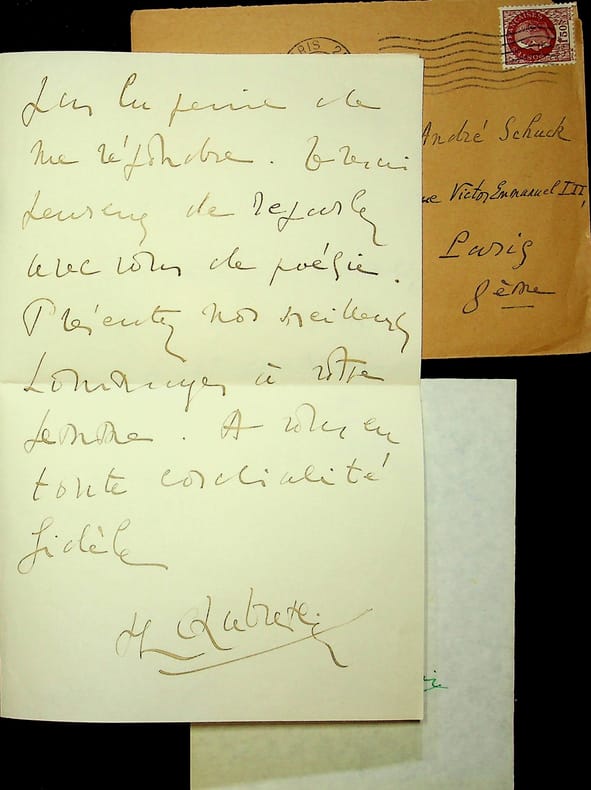 pas la peine de
me répondre. Je serai
heureux de reparler
avec vous de poésie.
Présentez nos meilleurs
hommages à votre
femme. A vous en
toute cordialité
fidèle
André Schuck
rue Victor Emmanuel III,
Paris
8ème
1F50